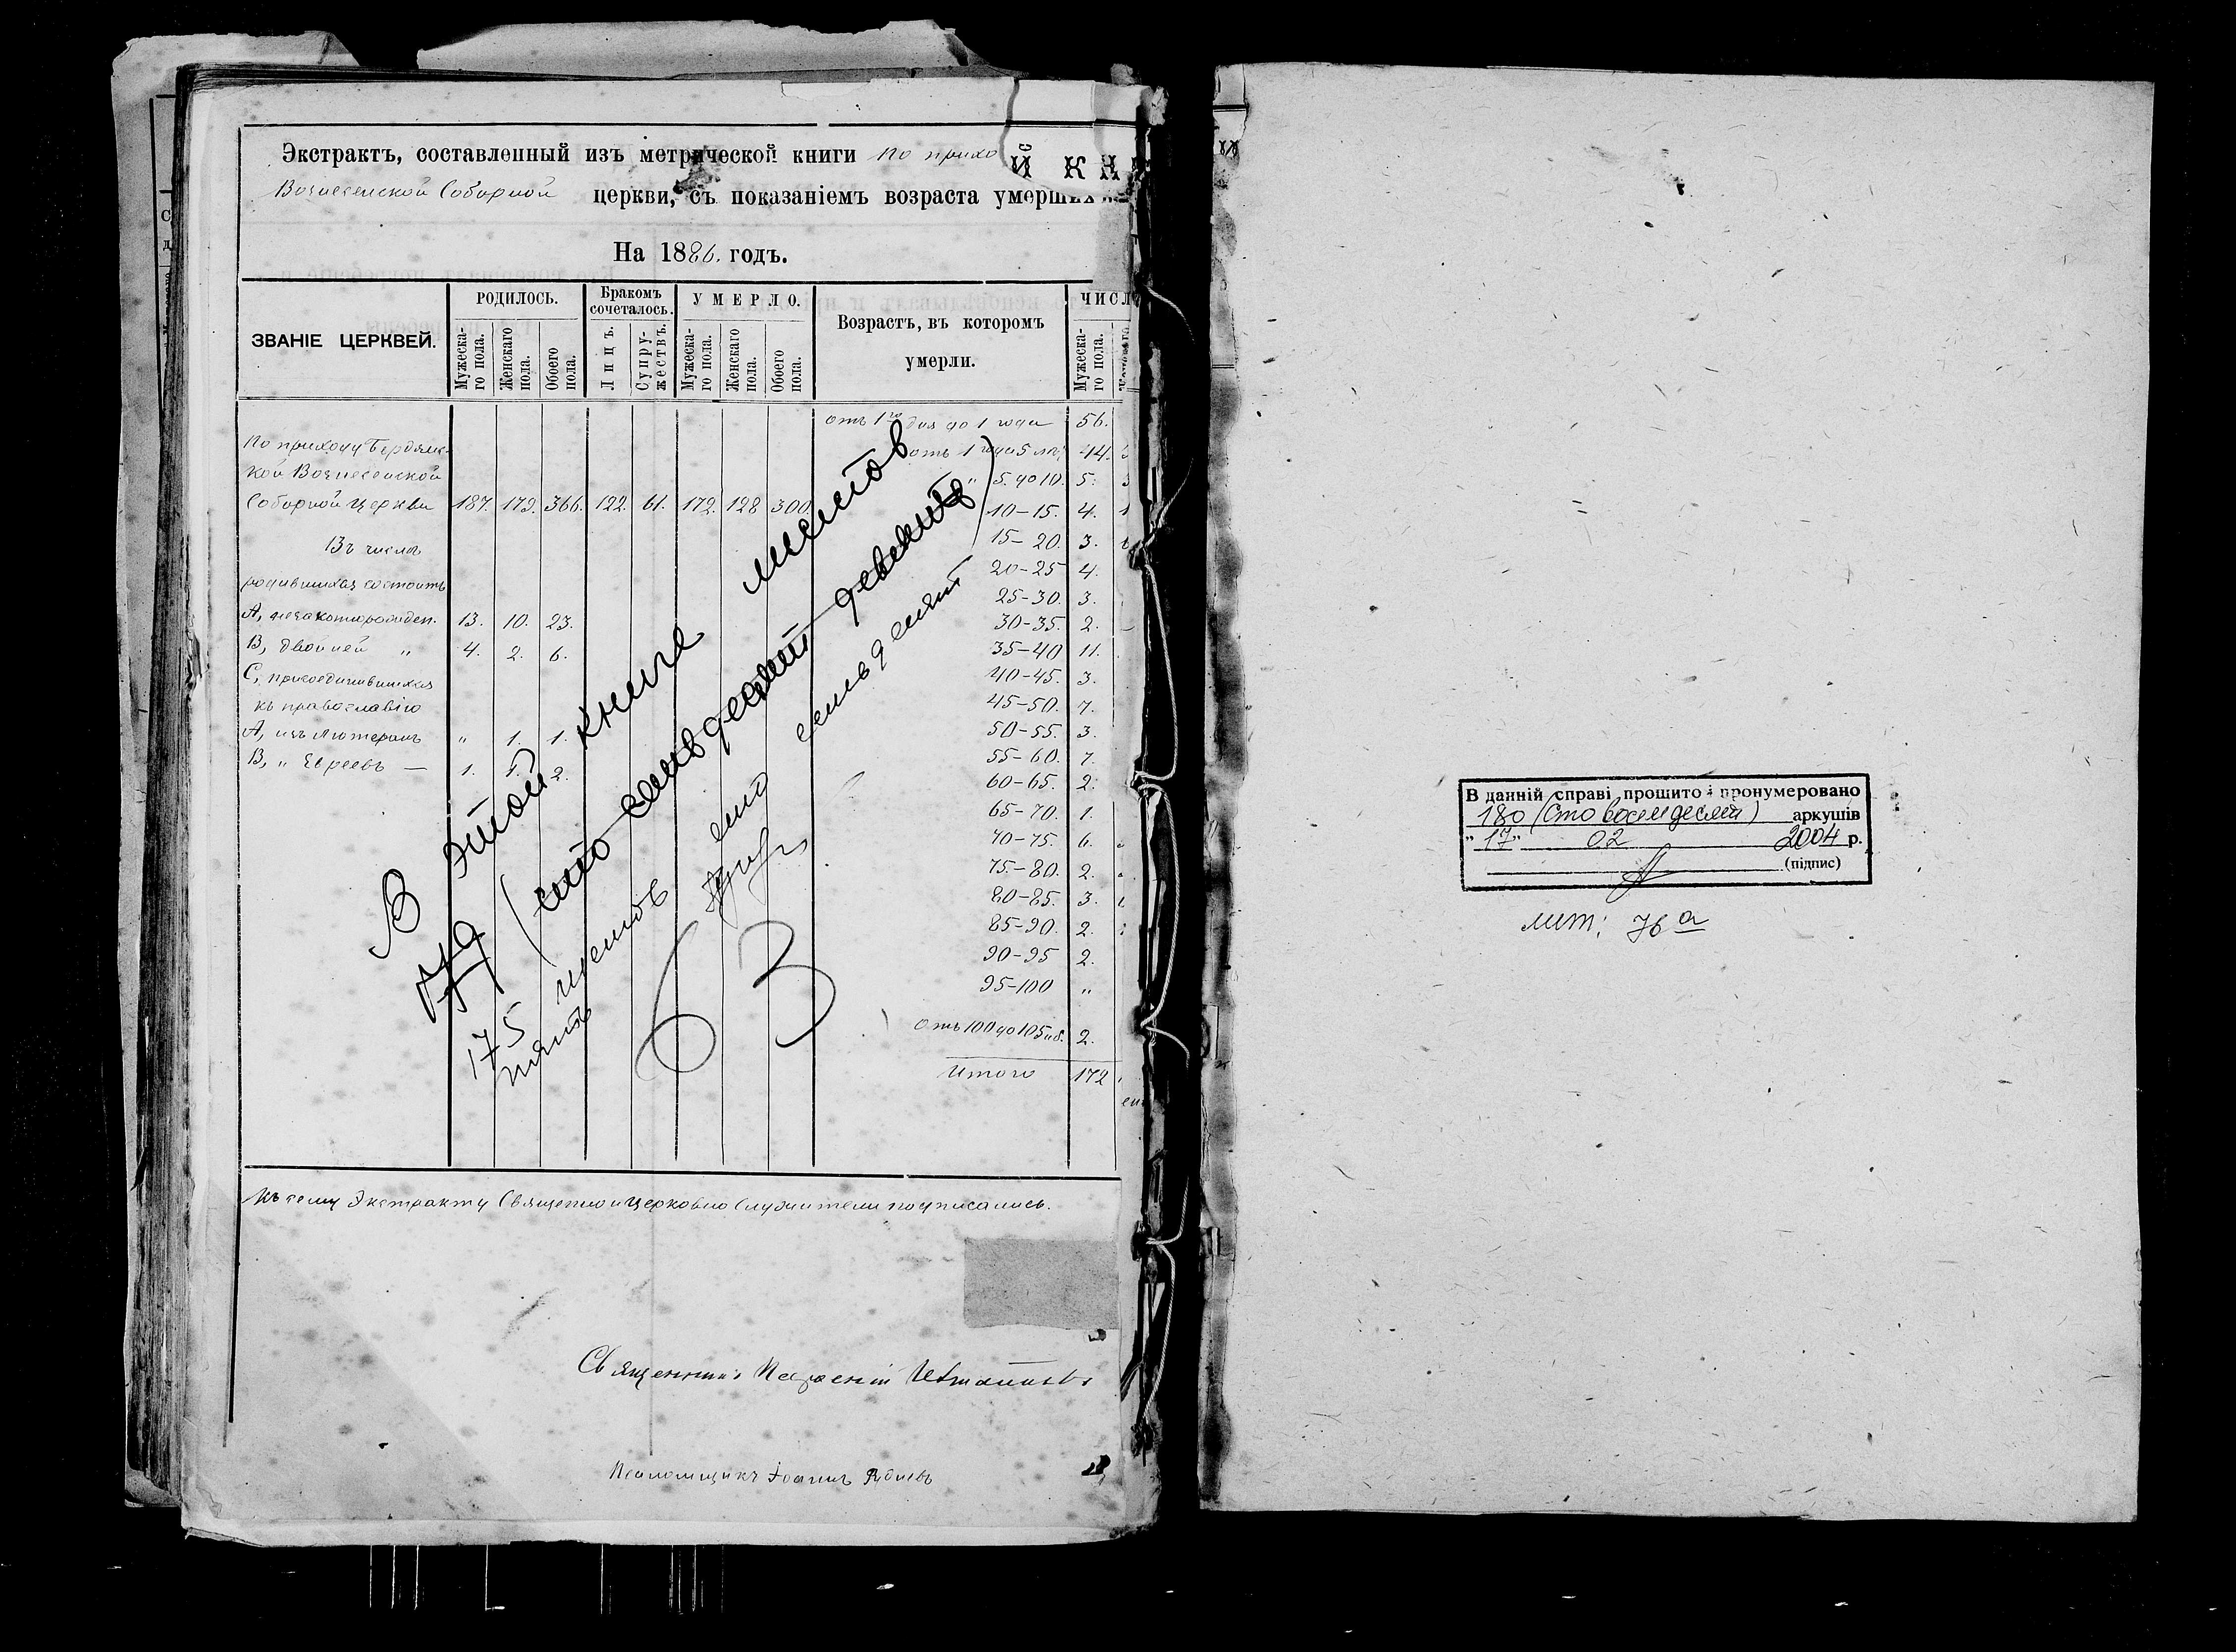 Экстрактъ, составленный изъ метрической книги по прихо
Вознесенской Соборной церкви, съ показаніемъ возраста умершихъ
Й К Н
На 1886. годъ.
ЗВАНІЕ ЦЕРКВЕЙ.
РОДИЛОСЬ.
Мужеска-
го пола.
Женскаго
пола.
Обоего
пола.
Бракомъ
сочеталось.
Лицъ.
Супру-
жествъ.
УМЕРЛО.
Мужеска-
го пола.
Женскаго
пола.
Обоего
пола.
Возрастъ, въ которомъ
умерли.
ЧИСЛ
Мужеска-
го пола.
По приходу Бердянс-
кой Вознесенской
Соборной Церкви 187. 179. 366. 122. 61. 172. 128 300.
Въ число
родившихся состоитъ
А, незаконорожден. 13. 10. 23.
В, двойней " 4. 2. 6.
С, присоединившихся
къ православію
А, изъ Лютеранъ " 1. 1.
В, " Евреевъ — 1. 1. 2.
отъ 1го дня до 1 года 56.
отъ 1 года 5 лѣт 44.
" 5. до 10. 5.
10-15. 4.
15-20. 3.
20-25 4.
25-30. 3.
30-35. 2.
35-40 11.
40-45. 3.
45-50. 7.
50-55. 3.
55-60. 7.
60-65. 2.
65-70. 1.
70-75. 6.
75-80. 2.
80-85. 3.
85-90. 2.
90-95 2.
95-100 "
отъ 100 до 105 2.
Итого 172
В этой книге листов
179 (сто семьдесят девять)
175 листов сто семьдесят
пять
63
Къ сему Экстракту Священно и церковно служители подписались.
Священникъ
Псаломщикъ Іоаннъ
В данній справі прошито і пронумеровано
180 (Сто восемдесят) аркушів
"17" 02 2004 р.
(підпис)
лит: 76 а